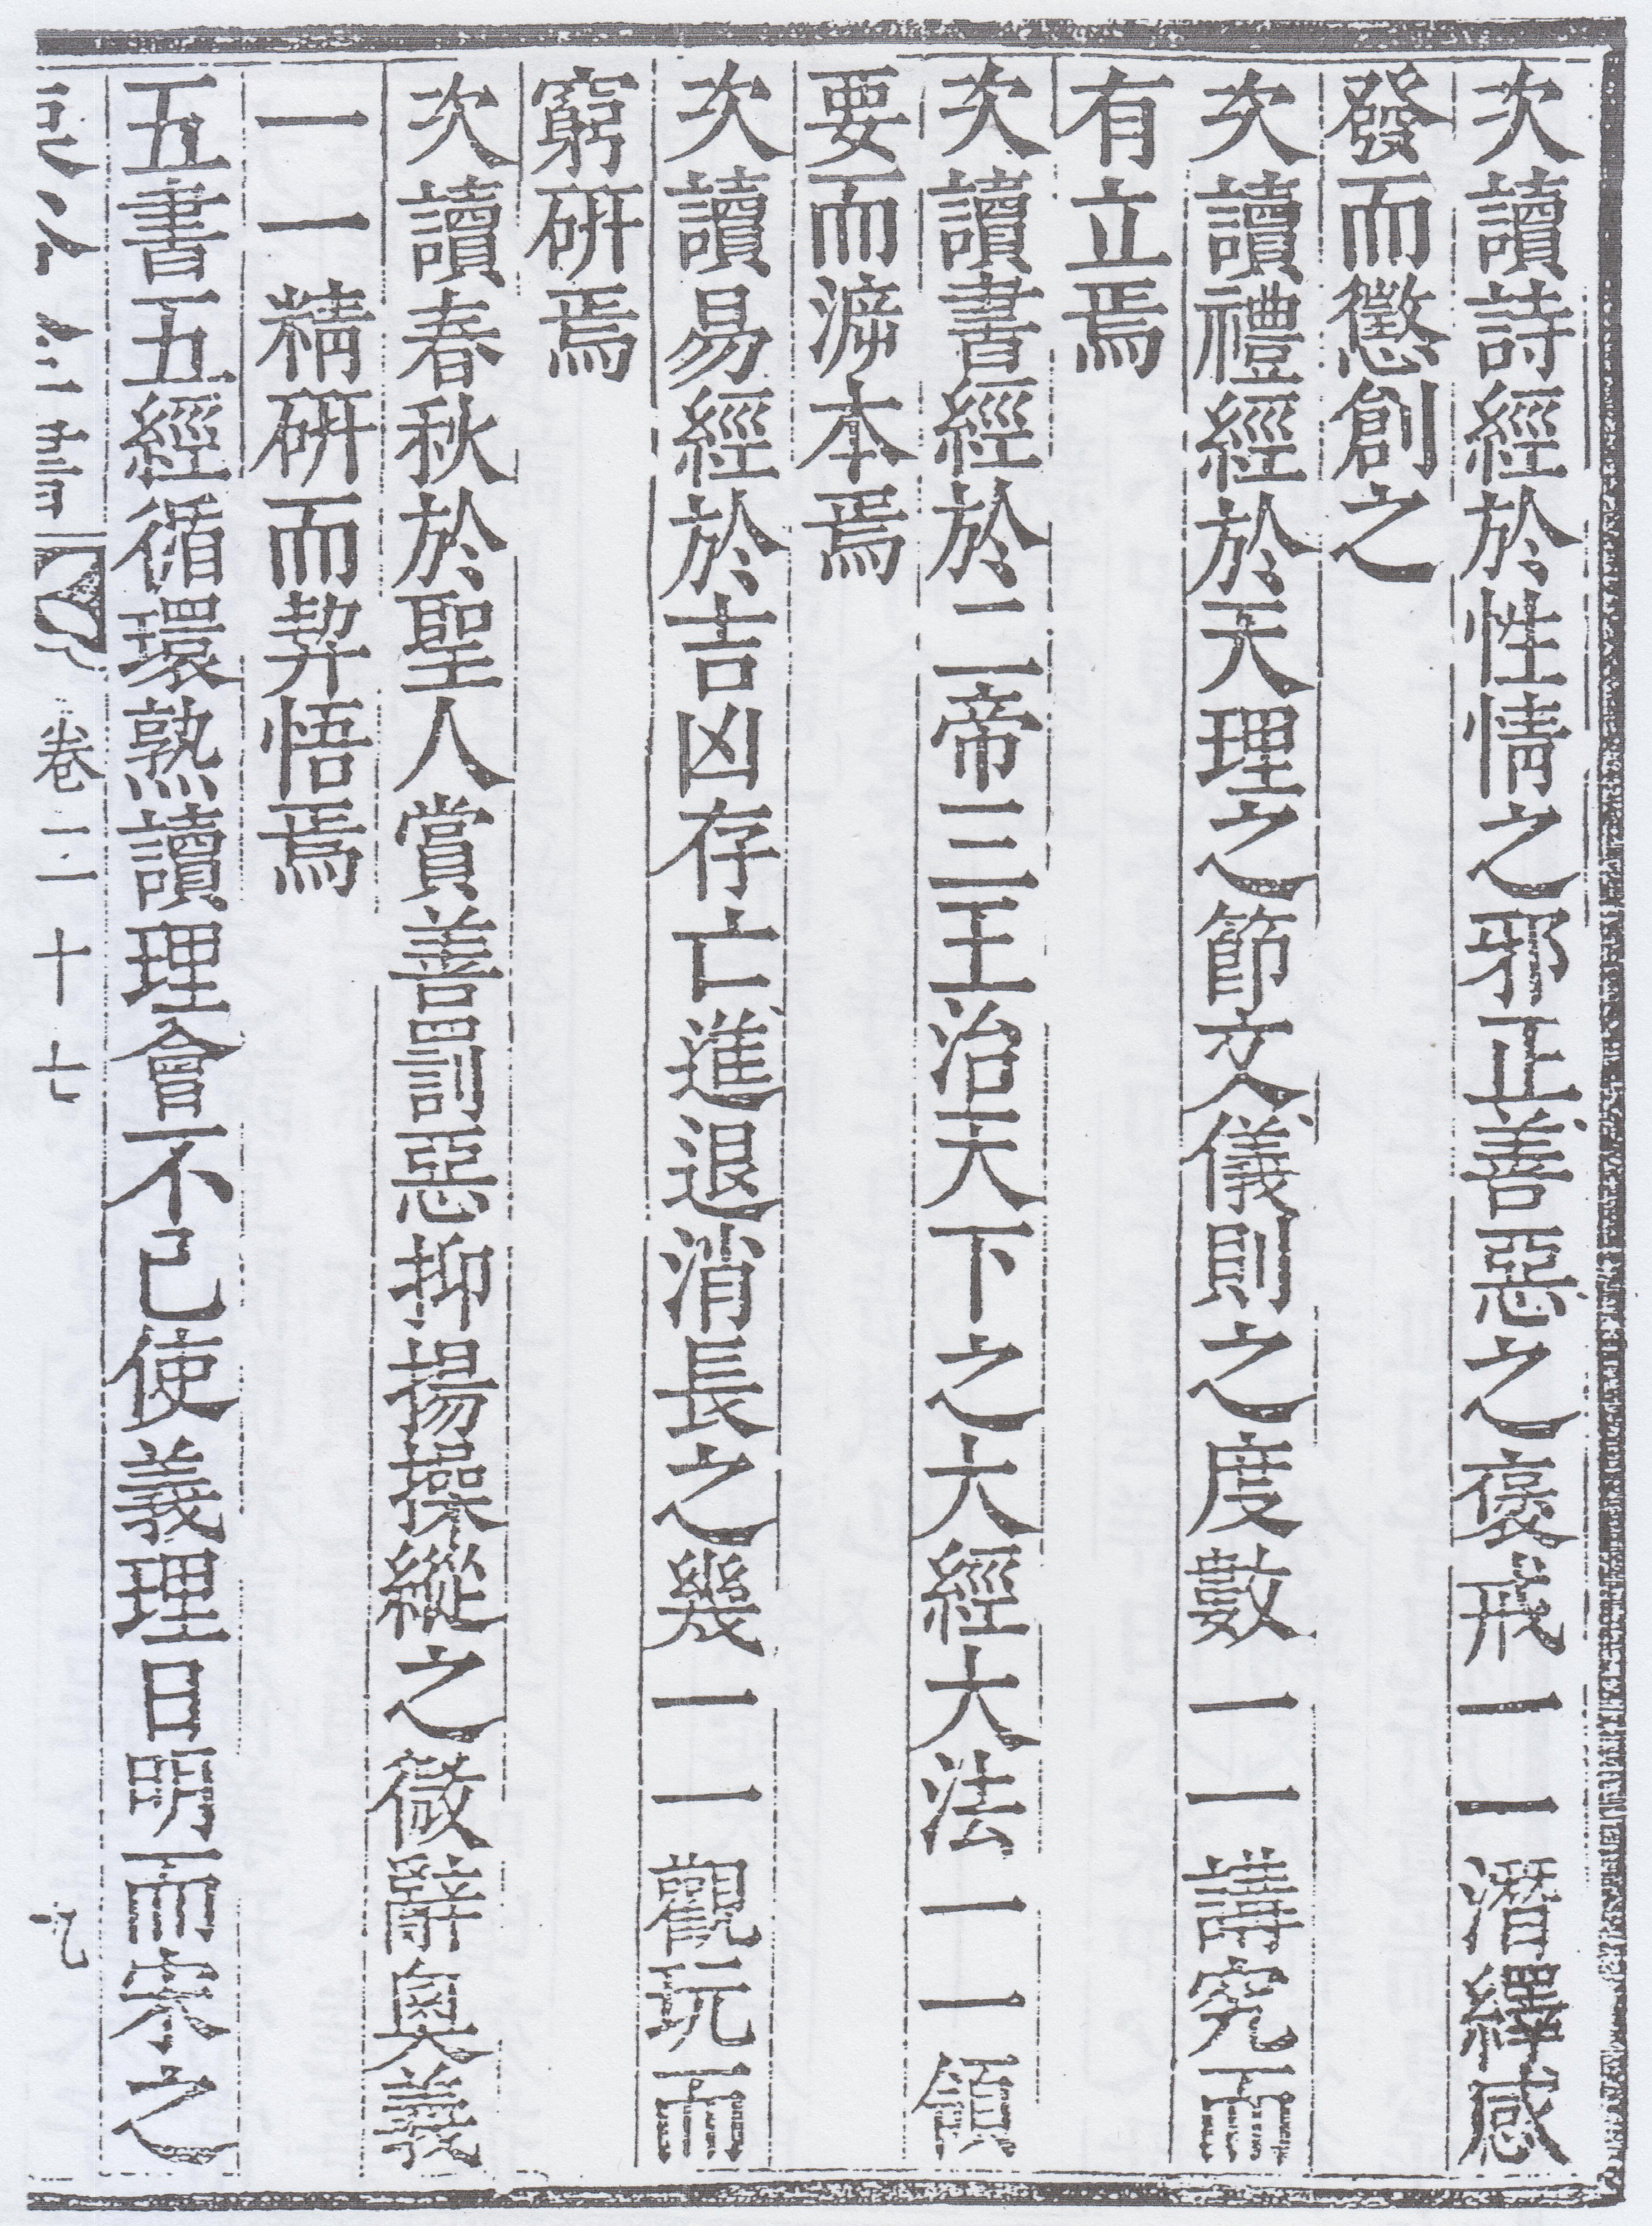 次讀詩經於性情之邪正善惡之襃戒一一潛繹感
發而懲創之
次讀禮經於天理之節文儀則之度數一一講究而
有立焉
次讀書經於二帝三王治天下之大經大法一一領
要而遡本焉
次讀易經於吉凶存亡進退消長之幾一一觀玩而
窮研焉
次讀春秋於聖人賞善罰惡抑揚操縱之微辭奧義
一一精研而契悟焉
五書五經循環熟讀理會不已使義理日明而宋之
卷二十七